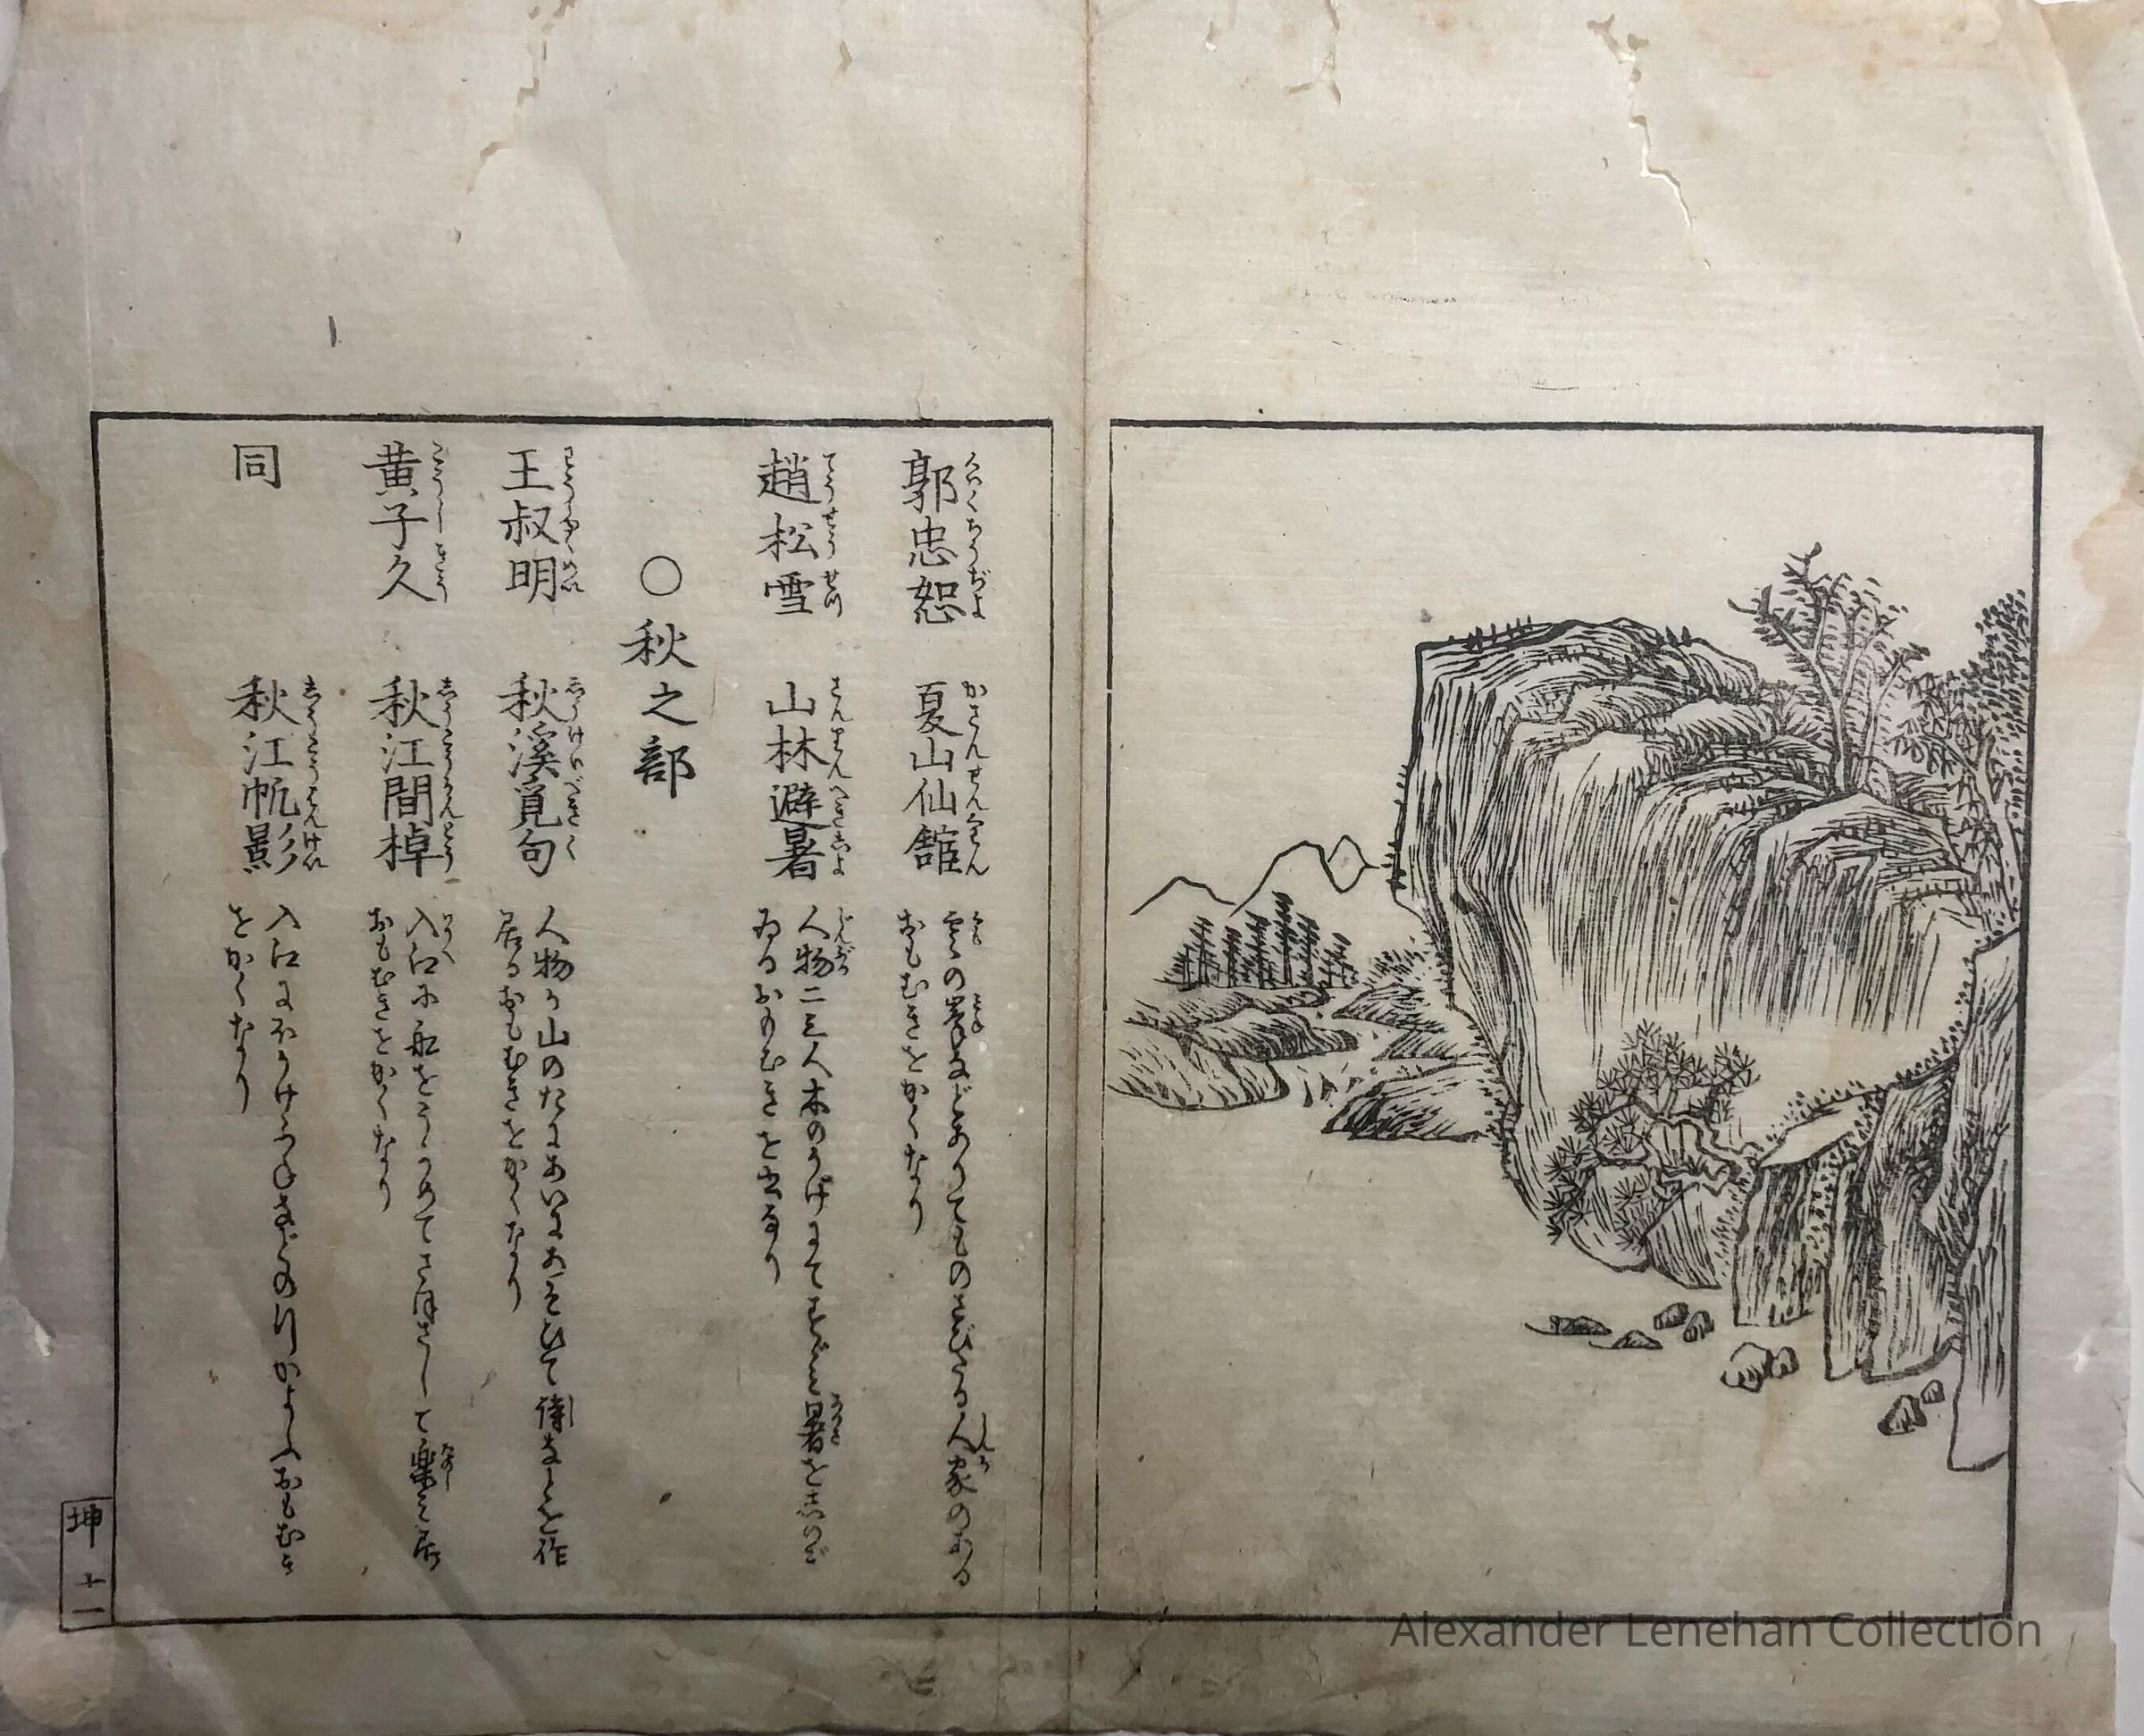 郭忠恕 夏山仙館 雲の峯などありてものさびたる人家のある
おもむきをかくなり
趙松雪 山林避暑 人物二三人木のかげにてすゞみ暑をしのぎ
ゐるおもむきを出るり
○秋之部
王叔明 秋溪覓句 人物が山のたにあいにあそひて詩などを作
居るおもむきをかくなり
黄子久 秋江間棹 入江に船をうかめてさほさして樂み居
おもむきをかくなり
同 秋江帆影 入江にほかけふねなどの行かよふおもむき
をかくなり
坤 十一
Alexander Lenehan Collection